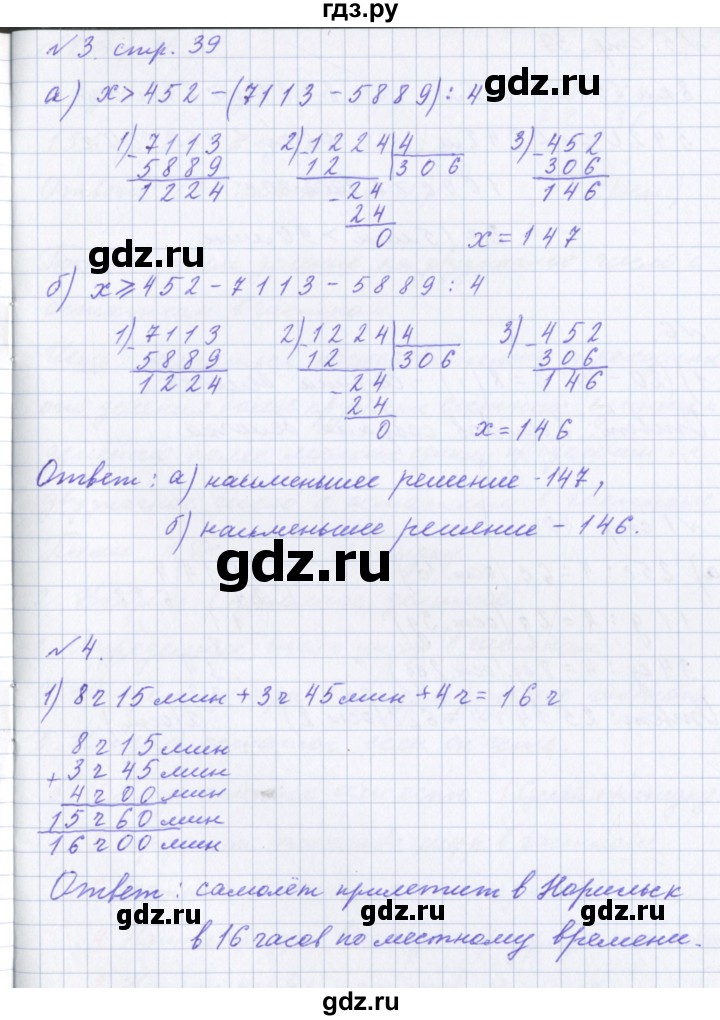 гдз.ру
№3. стр. 39
а) x > 452 - (7113 - 5889) : 4
gdz.ru
1) 7113 2) 1224 | 4 3) 452
- 5889 - 12 306 - 306
1224 - 24 146
24
0 x = 147
gdz.ru
б) x ⩾ 452 - 7113 - 5889 : 4
1) 7113 2) 1224 | 4 3) 452
- 5889 - 12 306 - 306
1224 - 24 146
24
0 x = 146
Ответ: а) насьменьшее решение - 147,
б) насьменьшее решение - 146.
gdz.ru
№4.
1) 8 ч 15 мин + 3 ч 45 мин + 4 ч = 16 ч
8 ч 15 мин
+ 3 ч 45 мин
4 ч 00 мин
15 ч 60 мин
16 ч 00 мин
Ответ: самолёт прилетит в Норильск
gdz.ru gdz.ru
в 16 часов по местному времени.
gdz.ru gdz.ru
gdz.ru